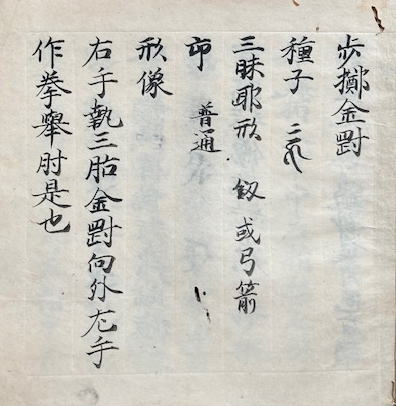 步擲金剛
種子
三昧耶形 釼或弓箭
印 普通
形像
右手執三胎金剛向外左手
作拳舉肘是也